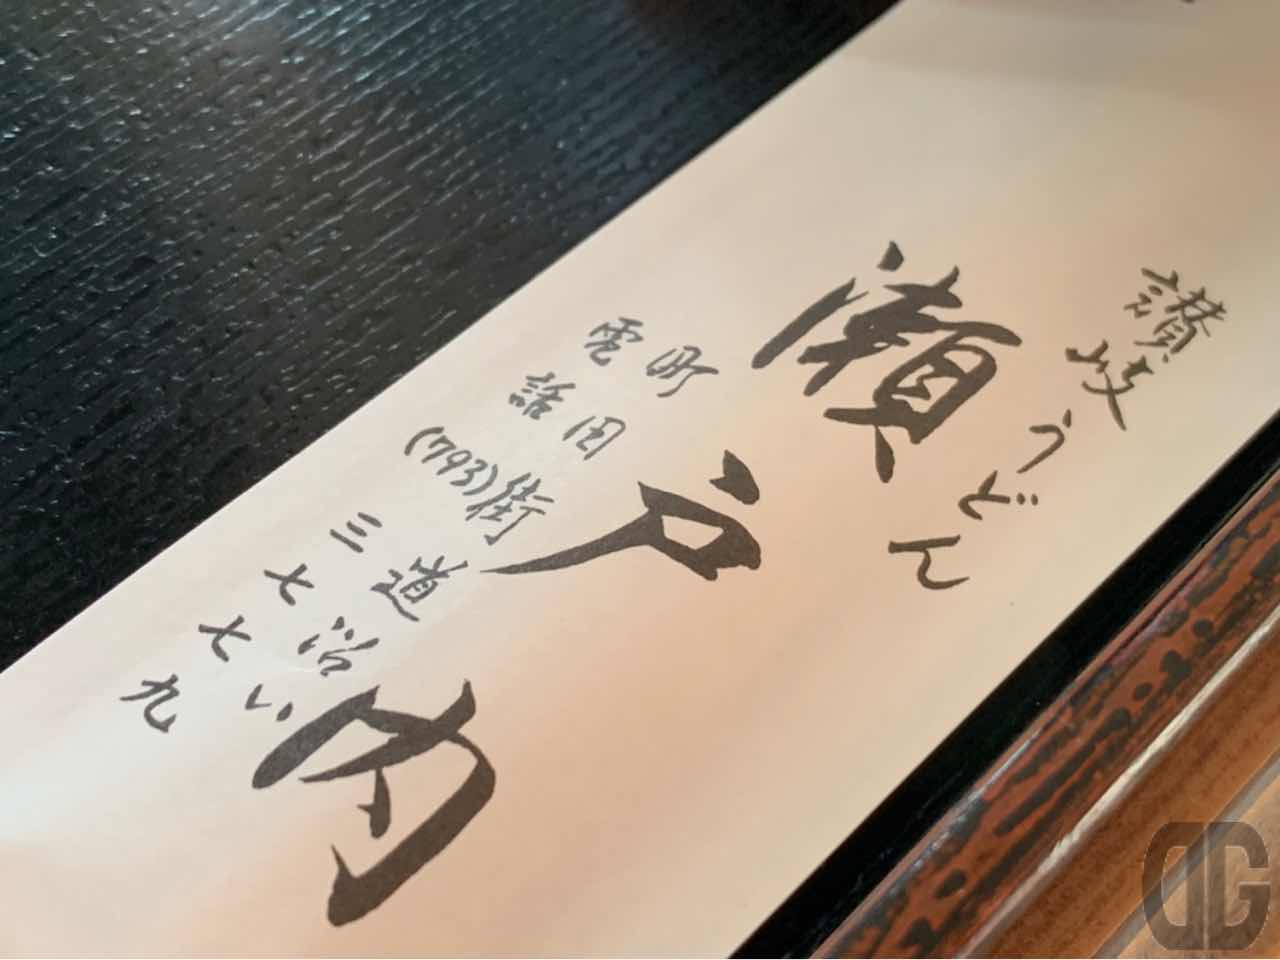 讃岐うどん
瀬戸内
町田街道沿い
電話(793)三七七九
DG